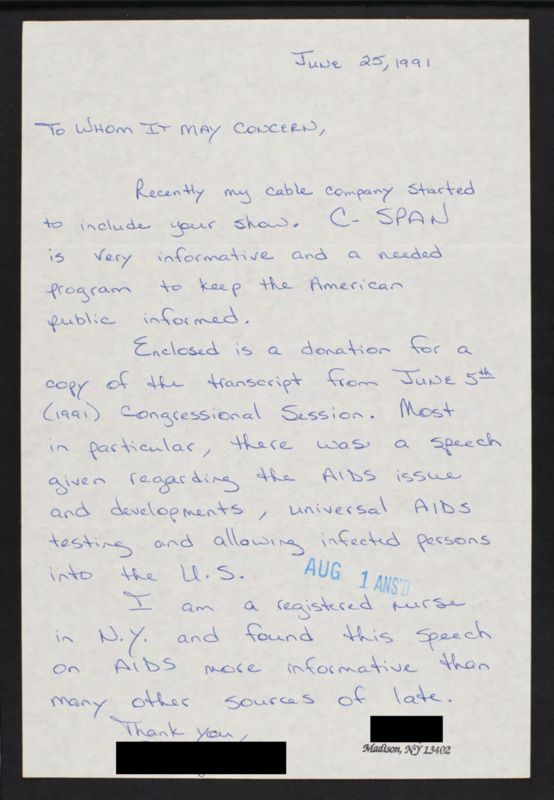 June 25, 1991
To Whom It May Concern,
Recently my cable company started
to include your show. C-SPAN
is very informative and a needed
program to keep the American
public informed.
Enclosed is a donation for a
copy of the transcript from June 5th
(1991) Congressional Session. Most
in particular, there was a speech
given regarding the AIDS issue
and developments, universal AIDS
testing and allowing infected persons
into the U.S.
AUG 1 ANS'D
I am a registered nurse
in N.Y. and found this speech
on AIDS more informative than
many other sources of late.
Thank you,
Madison, NY 13402